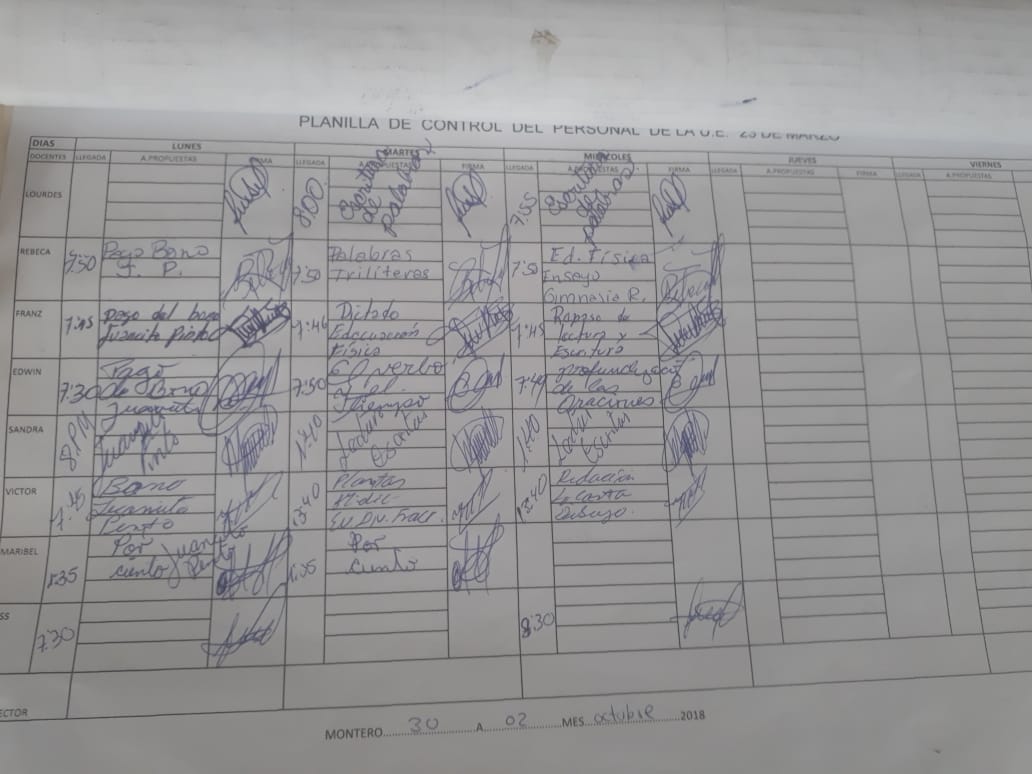 PLANILLA DE CONTROL DEL PERSONAL DE LA U.E. 23 DE MARZO
DIAS LUNES MARTES MIERCOLES JUEVES VIERNES
DOCENTES LLEGADA A.PROPUESTAS FIRMA LLEGADA A.PROPUESTAS FIRMA LLEGADA A.PROPUESTAS FIRMA LLEGADA A.PROPUESTAS FIRMA LLEGADA A.PROPUESTAS
LOURDES 8:00 Escritura de palabras 7:55 Escritura de palabras
REBECA 7:50 Pago Bono J. P. 7:50 Palabras Trilíteras 7:50 Ed. Física Ensayo Gimnasia R.
FRANZ 7:45 pago del bono Juancito Pinto 7:46 Dictado Educación Física 7:45 Repaso de lectura y Escritura
EDWIN 7:30 Pago de Bono Juancito 7:50 El verbo y el Tiempo 7:49 profundización de las Oraciones
SANDRA 8 PM Juancito Pinto
VICTOR 7:45 Bono Juancito Pinto 13:40 Plantas Medic. 13:40 Redacción La carta Dibujo.
MARIBEL 1:35 Por ciento Juancito Pinto Por ciento
SS 7:30 8:30
ECTOR
MONTERO 30 A 02 MES octubre 2018